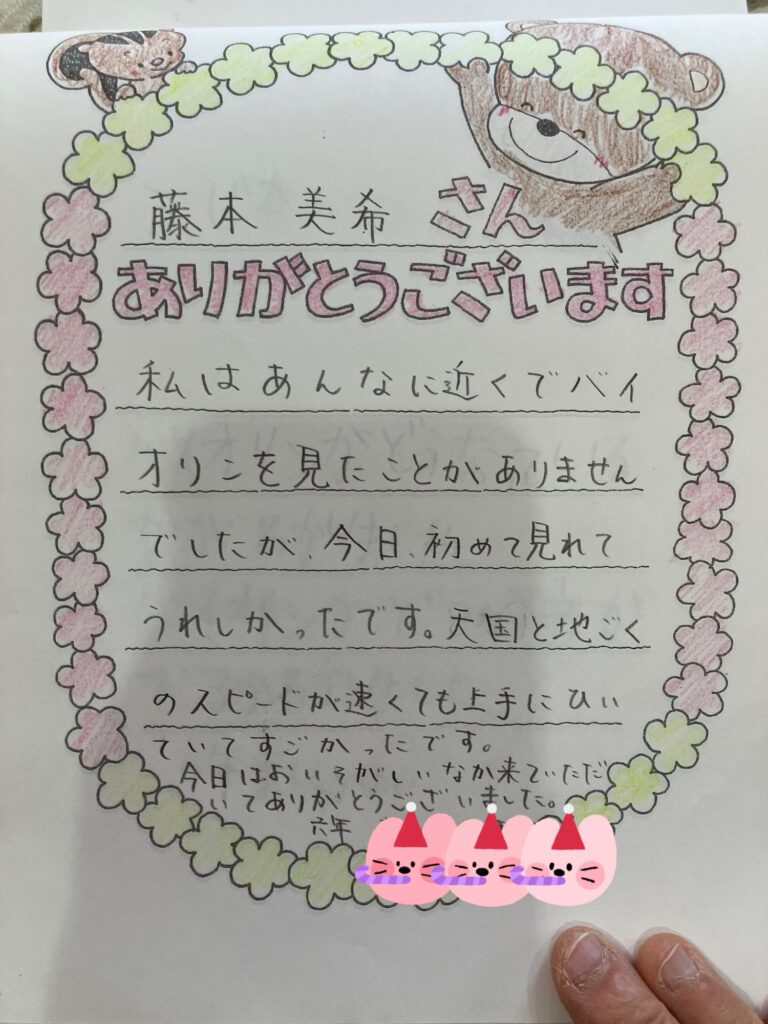 藤本 美希 さん
ありがとうございます
私はあんなに近くでバイ
オリンを見たことがありません
でしたが、今日、初めて見れて
うれしかったです。天国と地ごく
のスピードが速くても上手にひい
ていてすごかったです。
今日はおいそがしいなか来ていただ
いてありがとうございました。
六年